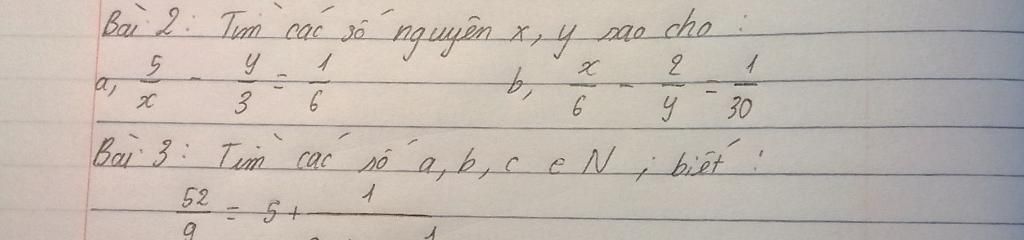 Bài 2: Tìm các số nguyên x, y sao cho:
a, 5/x - y/3 = 1/6 b, x/6 - 2/y = 1/30
Bài 3: Tìm các số a, b, c ∈ N; biết:
52/9 = 5 + 1
1